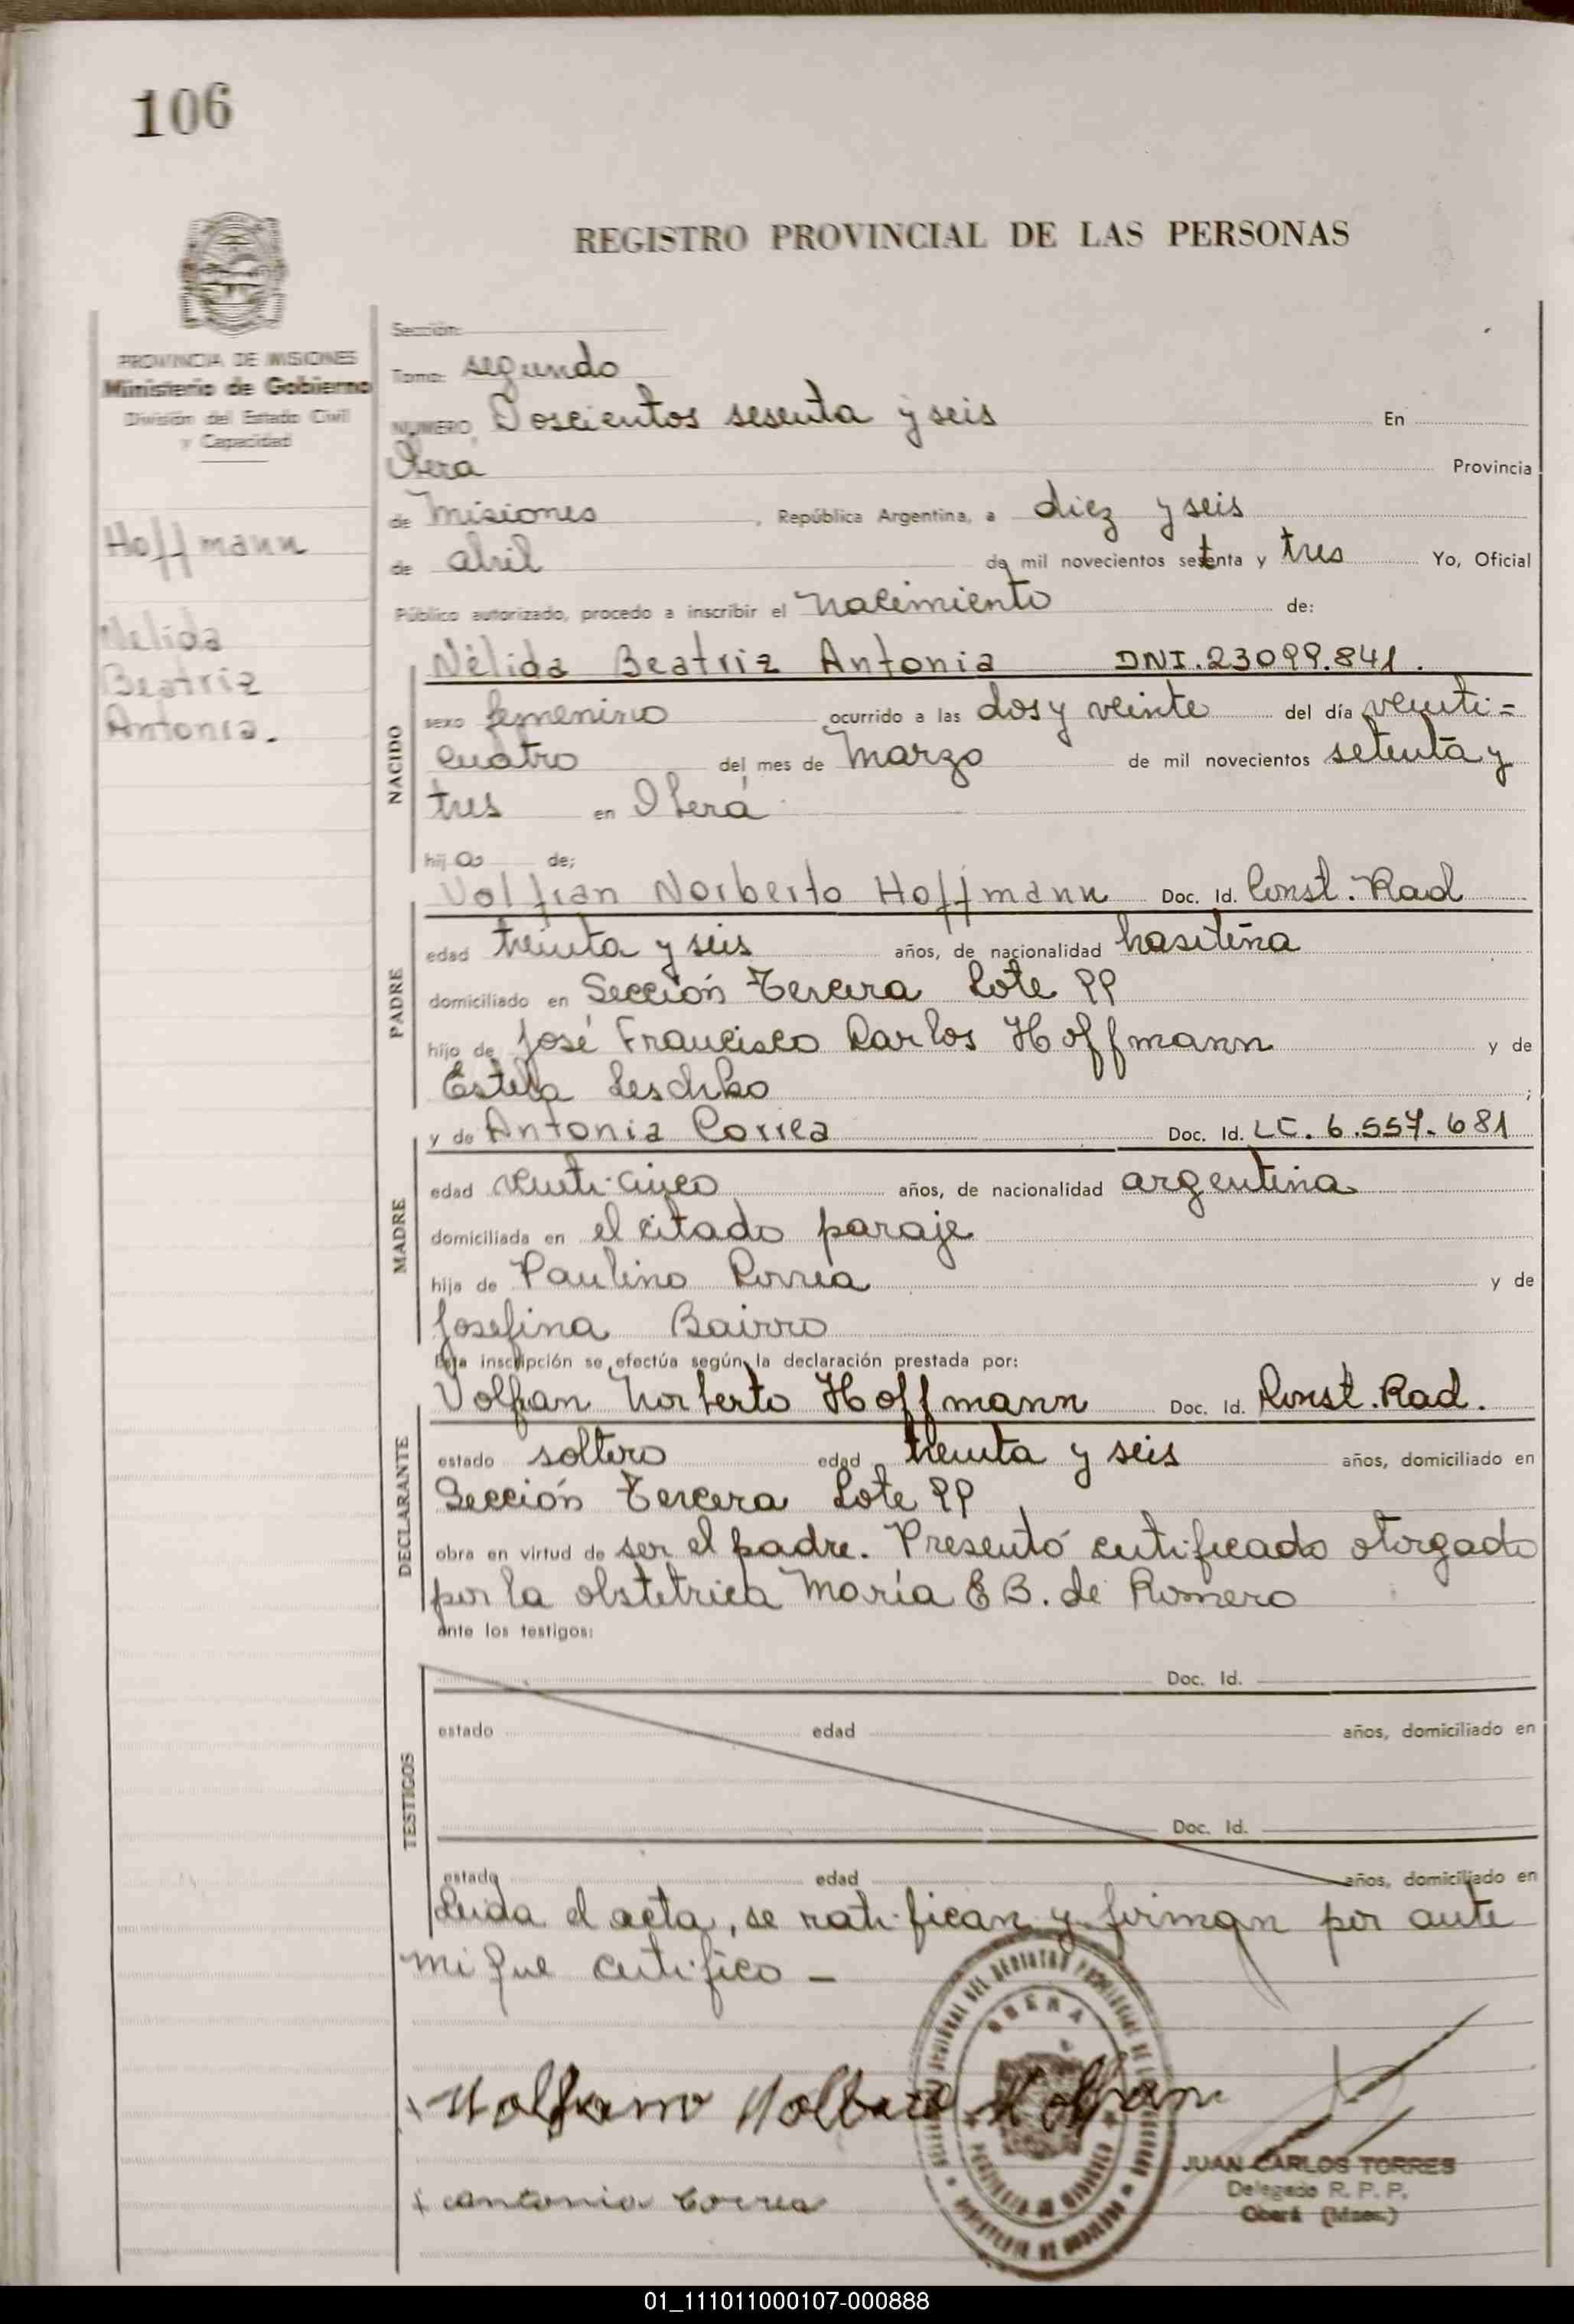 106
REGISTRO PROVINCIAL DE LAS PERSONAS
PROVINCIA DE MISIONES
Ministerio de Gobierno
División del Estado Civil
y Capacidad
Hoffmann
Nelida
Beatriz
Antonia.
Sección:
Tomo: segundo
NUMERO Doscientos sesenta y seis En
Oberá Provincia
de Misiones, República Argentina, a diez y seis
de abril de mil novecientos setenta y tres Yo, Oficial
Público autorizado, procedo a inscribir el nacimiento de:
NACIDO
Nélida Beatriz Antonia DNI.23099.841.
sexo femenino ocurrido a las dos y veinte del día veinti=
cuatro del mes de Marzo de mil novecientos setenta y
tres en Oberá
hija de;
PADRE
Volfran Norberto Hoffmann Doc. Id. Const. Rad
edad treinta y seis años, de nacionalidad brasileña
domiciliado en Sección Tercera Lote 99
hijo de José Francisco Carlos Hoffmann y de
Estela Leschko;
MADRE
y de Antonia Correa Doc. Id. LC. 6.557.681
edad veinti-cinco años, de nacionalidad argentina
domiciliada en el citado paraje
hija de Paulino Correa y de
Josefina Bairro
Esta inscripción se efectúa según la declaración prestada por:
DECLARANTE
Volfran Norberto Hoffmann Doc. Id. Const. Rad.
estado soltero edad treinta y seis años, domiciliado en
Sección Tercera Lote 99
obra en virtud de ser el padre. Presentó certificado otorgado
por la obstetrica María E B. de Romero
ante los testigos:
TESTIGOS
Doc. Id.
estado edad años, domiciliado en
Doc. Id.
estado edad años, domiciliado en
Leida el acta, se ratifican y firman por ante
mi que certifico —
OBERA
PROVINCIA DE MISIONES
JUAN CARLOS TORRES
Delegado R. P. P.
Oberá (Mnes.)
x antonia Correa
01_111011000107-000888